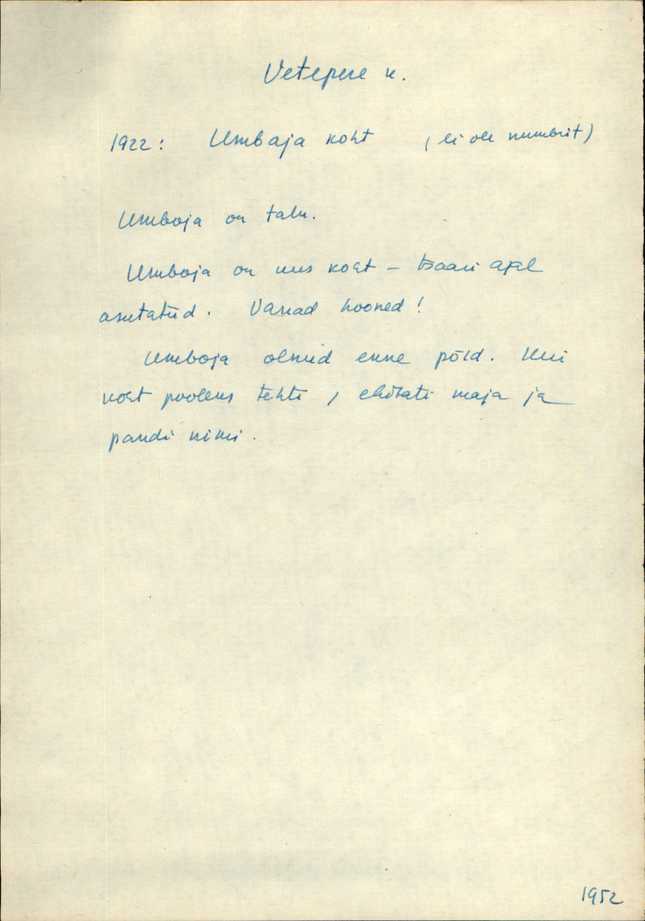 Vetepere k.
1922: Umbaja koht (ei ole numbrit)
Umboja on talu.
Umboja on uus koht – tsaari ajal
asutatud. Vanad hooned!
Umboja olnud enne põld. Kui
koht pooleks tehti, ehitati maja ja
pandi nimi.
1952